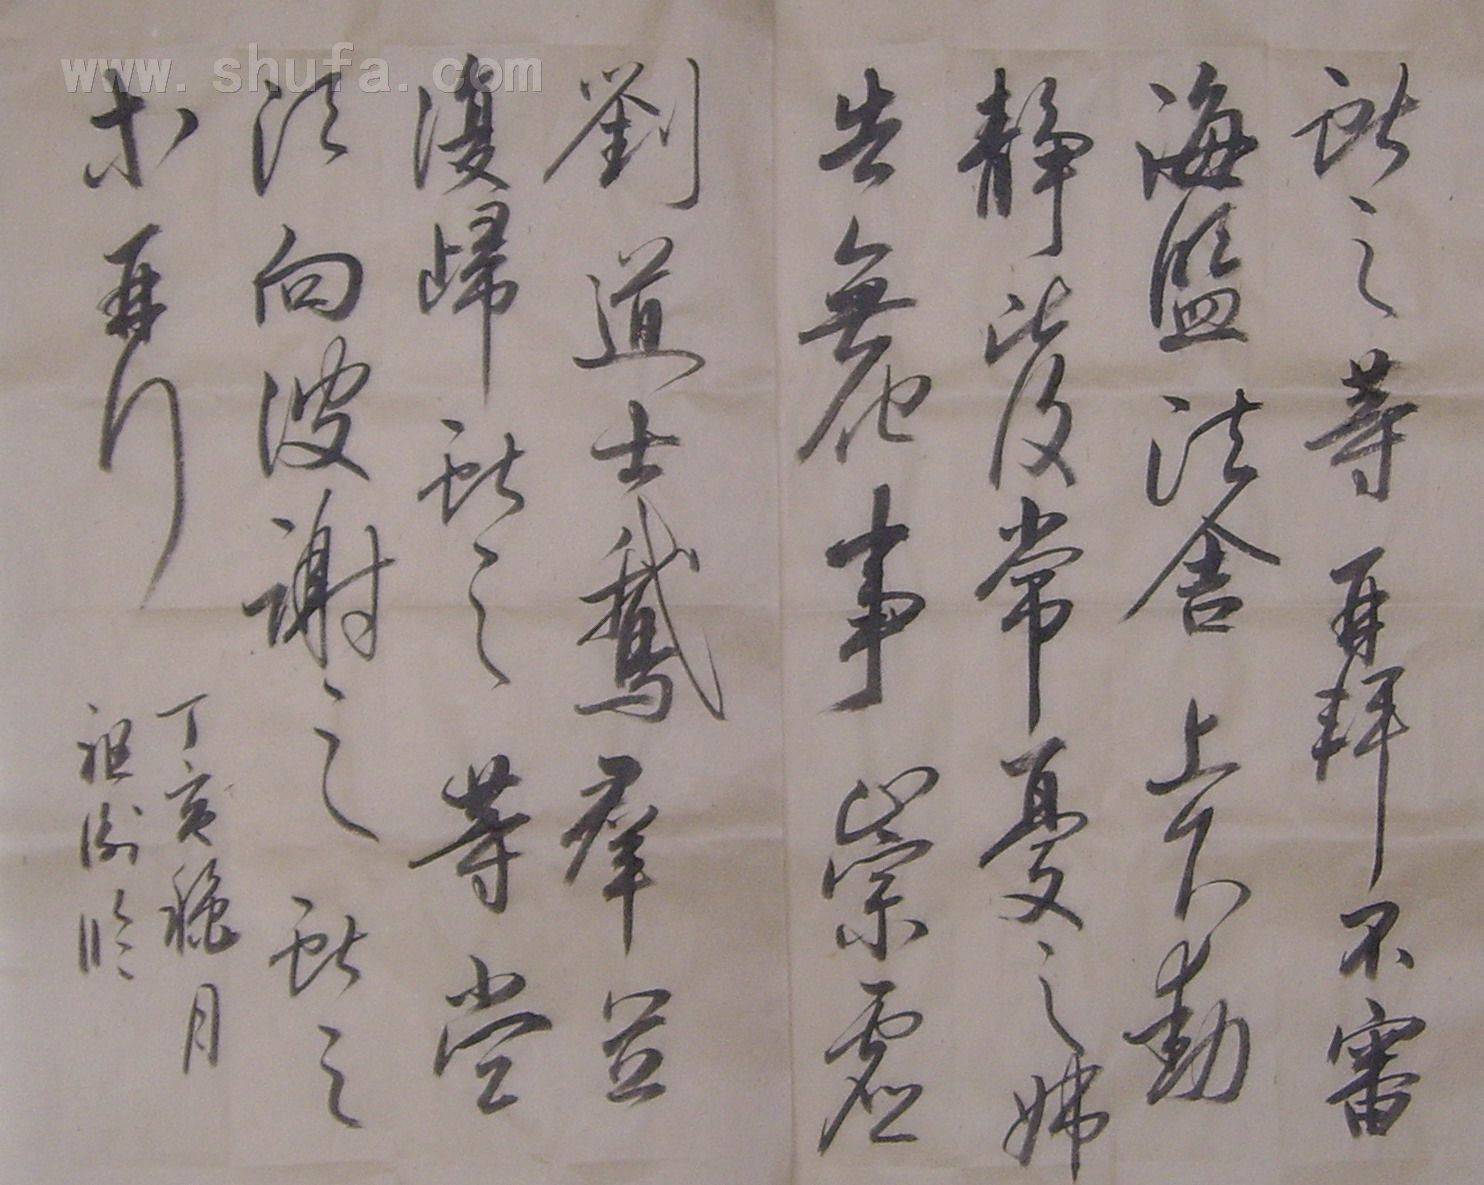 www.shufa.com
獻之等再拜不審
海鹽諸舍上下動
靜比復常憂之姊
告無他事崇虛
劉道士鵝羣並
復歸獻之等當
須向彼謝之獻之
等再拜
丁亥穐月
祖臨